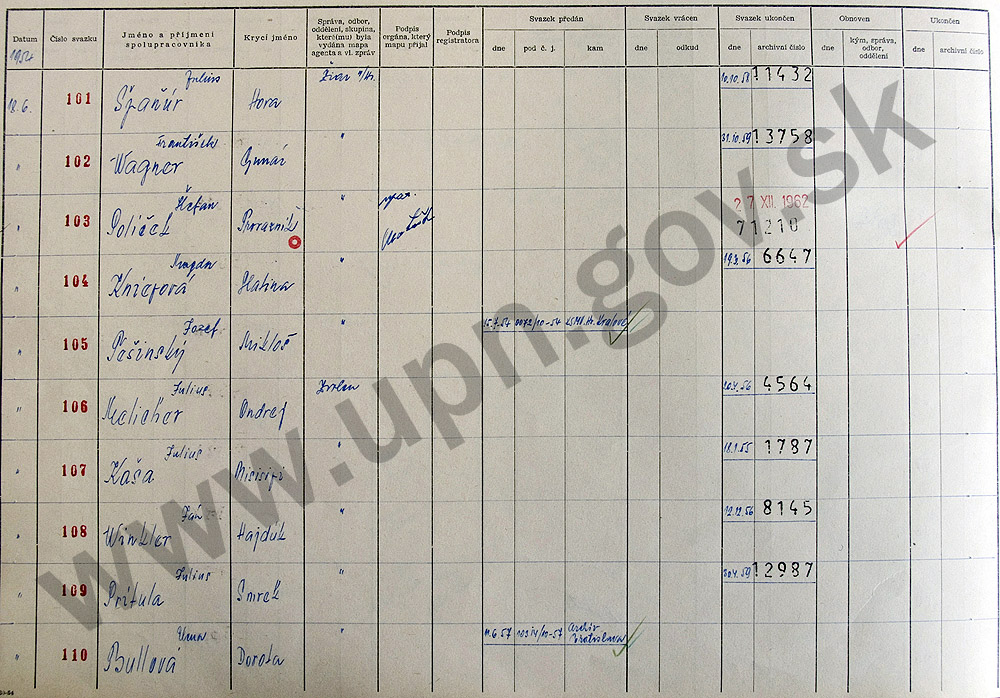 Datum
Číslo svazku
Jméno a příjmení spolupracovníka
Krycí jméno
Správa, odbor, oddělení, skupina, které(mu) byla vydána mapa agenta a vl. zpráv
Podpis orgána, který mapu přijal
Podpis registratora
Svazek předán
dne
pod č. j.
kam
Svazek vrácen
dne
odkud
Svazek ukončen
dne
archivní číslo
Obnoven
dne
kým, správa, odbor, oddělení
Ukončen
dne
archivní číslo
1954
18.6. 101 Július Hora 10.10.58 11432
" 102 František Wagner " 31.10.59 13758
" 103 Štefan Poliček " 27 XII. 1962 71210
" 104 Magda Halina " 6647
" 105 Jozef Pešinský Mikloš " 15.7.54
" 106 Július Melicher Ondrej Zvolen 4564
" 107 Július Kaša " 18.1.55 1787
" 108 Ján Winkler Hajdúk " 12.12.56 8145
" 109 Július Prítula Smrek " 12987
" 110 Bullová Dorota " 11.6.57 Archív Bratislava
www.upn.gov.sk